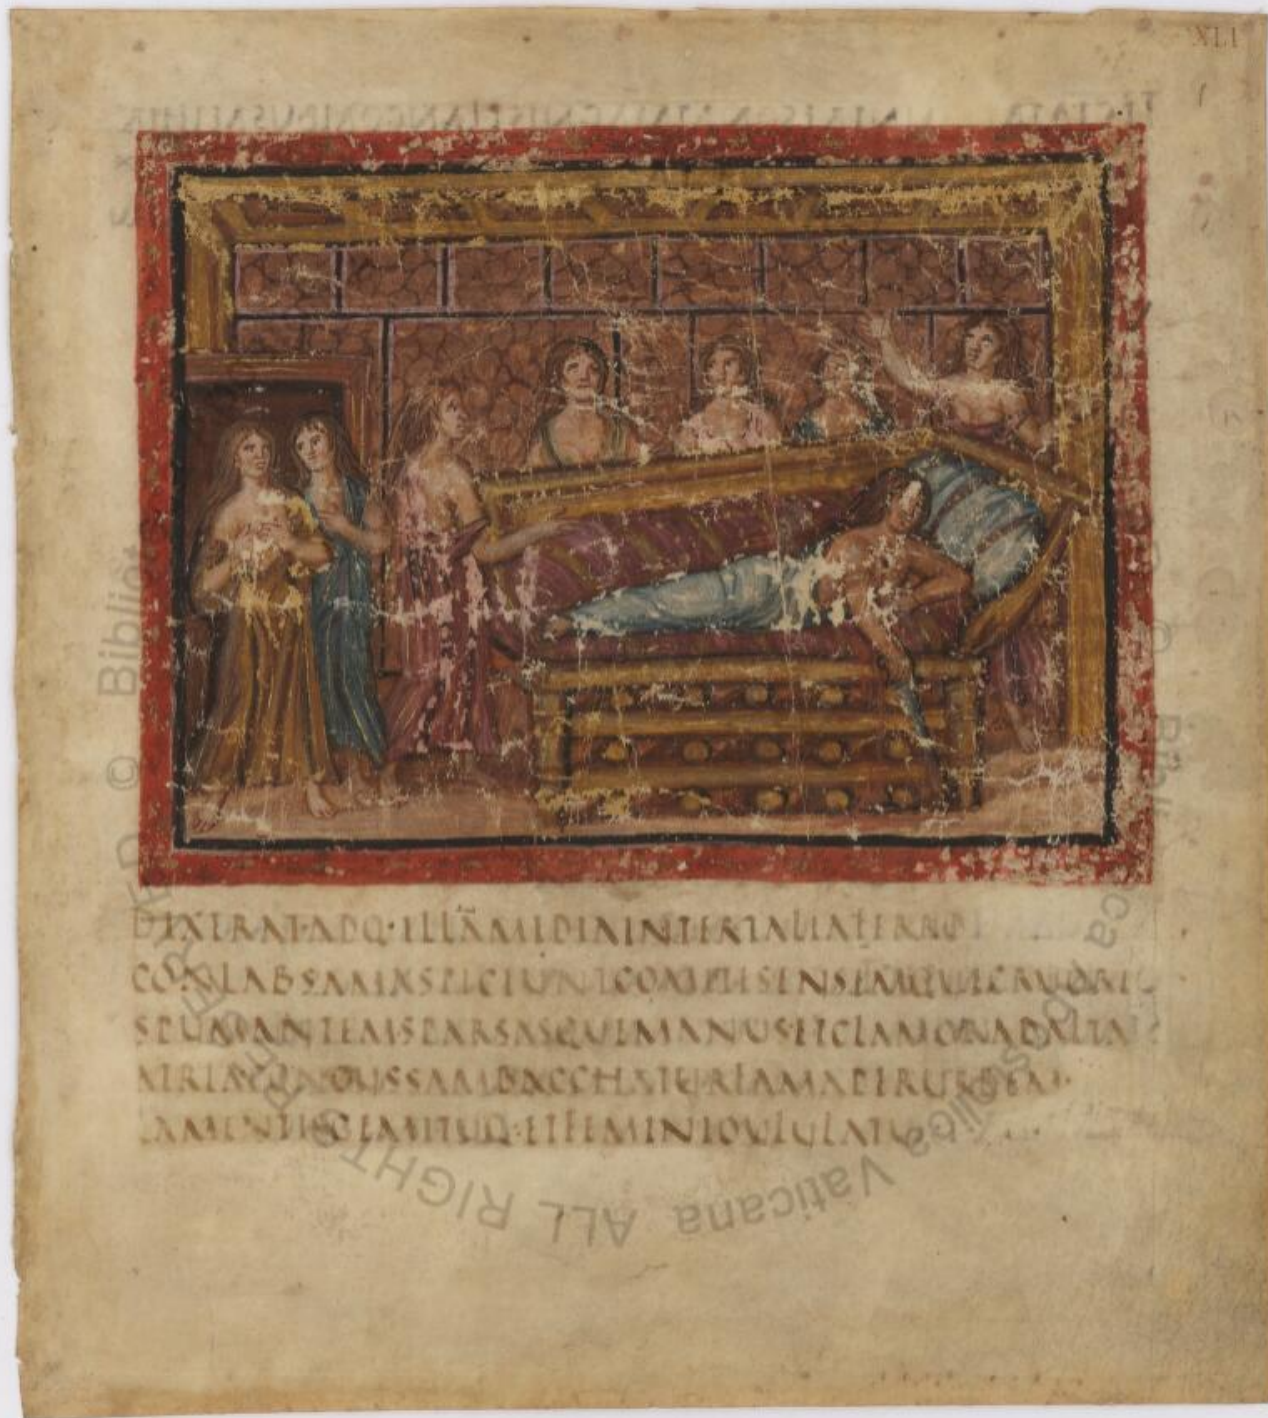 XLI
DIXERAT·ADQ·ILLAMEDIAINTERTALIAFERRO
CONLABSAMASPICIUNTCOMITESENSEMQUECRUORE
SPUMANTEMSPARSASQUEMANUS·ITCLAMORADALTA
ATRIACONCUSSAMBACCHATURFAMAPERURBEM·
LAMENTISGEMITUQ·ETFEMINEOULULATU
© Bibliot ca Apostolica Vaticana ALL RIGHTS RESERVED